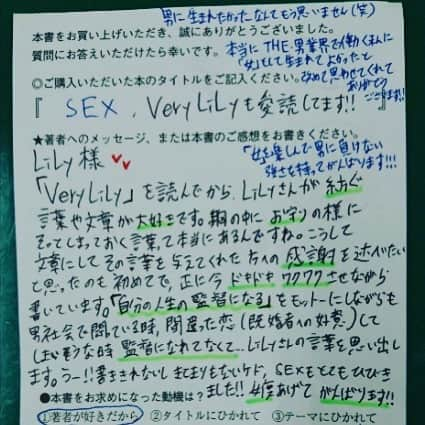 男に生まれたかったなんてもう思いません(笑)
本書をお買い上げいただき、誠にありがとうございました。
質問にお答えいただけたら幸いです。
本当に THE・男業界で働くまんに
「女」として生まれてよかったと
改めて思わせてくれて
ありがとう
ございます!!
◎ご購入いただいた本のタイトルをご記入ください。
『 SEX 、Very LiLyも愛読してます!! 』
★著者へのメッセージ、または本書のご感想をお書きください。
「女を楽しんで男に負けない
強さを持ってがんばります!!!
LiLy 様
「Very Lily」を読んでから、LiLyさんが紡ぐ
言葉や文章が大好きです。胸の中にお守りの様に
そってしまっておく言葉って本当にあるんですね。こうして
文章にしてその言葉を与えてくれた方への感謝を述べたい
と思ったのも初めてで、正に今ドキドキワクワクさせながら
書いています。「自分の人生の監督になる」をモットーにしながらも
男社会で闘っている時、間違った恋(既婚者への好意)して
しまいそうな時 監督になれてなくて… LiLyさんの言葉を思い出し
ます。うー!!書ききれないしまとまりもないケド、SEXもとてもひびき
ました!!
●本書をお求めになった動機は?
女度あげてがんばります!!
①著者が好きだから ②タイトルにひかれて ③テーマにひかれて